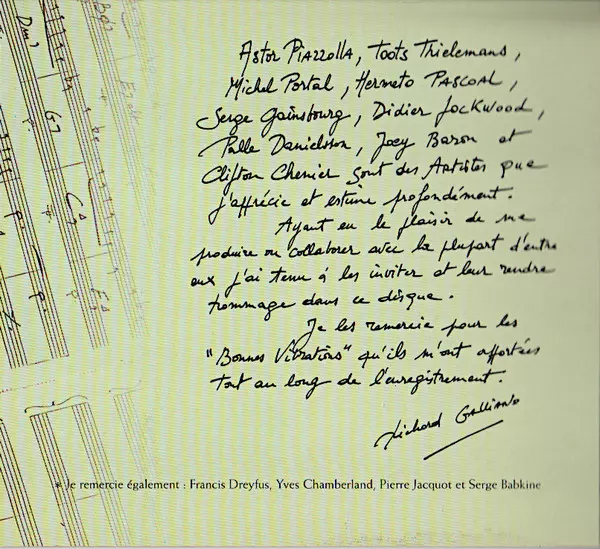 Astor PIAZZOLLA, Toots Thielemans,
Michel Portal, Hermeto PASCOAL,
Serge Gainsbourg, Didier Lockwood,
Palle Danielsson, Joey Baron et
Clifton Chenier sont des Artistes que
j'apprécie et estime profondément.
Ayant eu le plaisir de me
produire ou collaborer avec la plupart d'entre
eux j'ai tenu à les inviter et leur rendre
hommage dans ce disque.
Je les remercie pour les
"Bonnes Vibrations" qu'ils m'ont apportées
tout au long de l'enregistrement.
Richard GALLIANO
* Je remercie également : Francis Dreyfus, Yves Chamberland, Pierre Jacquot et Serge Babkine
Dm7
G7